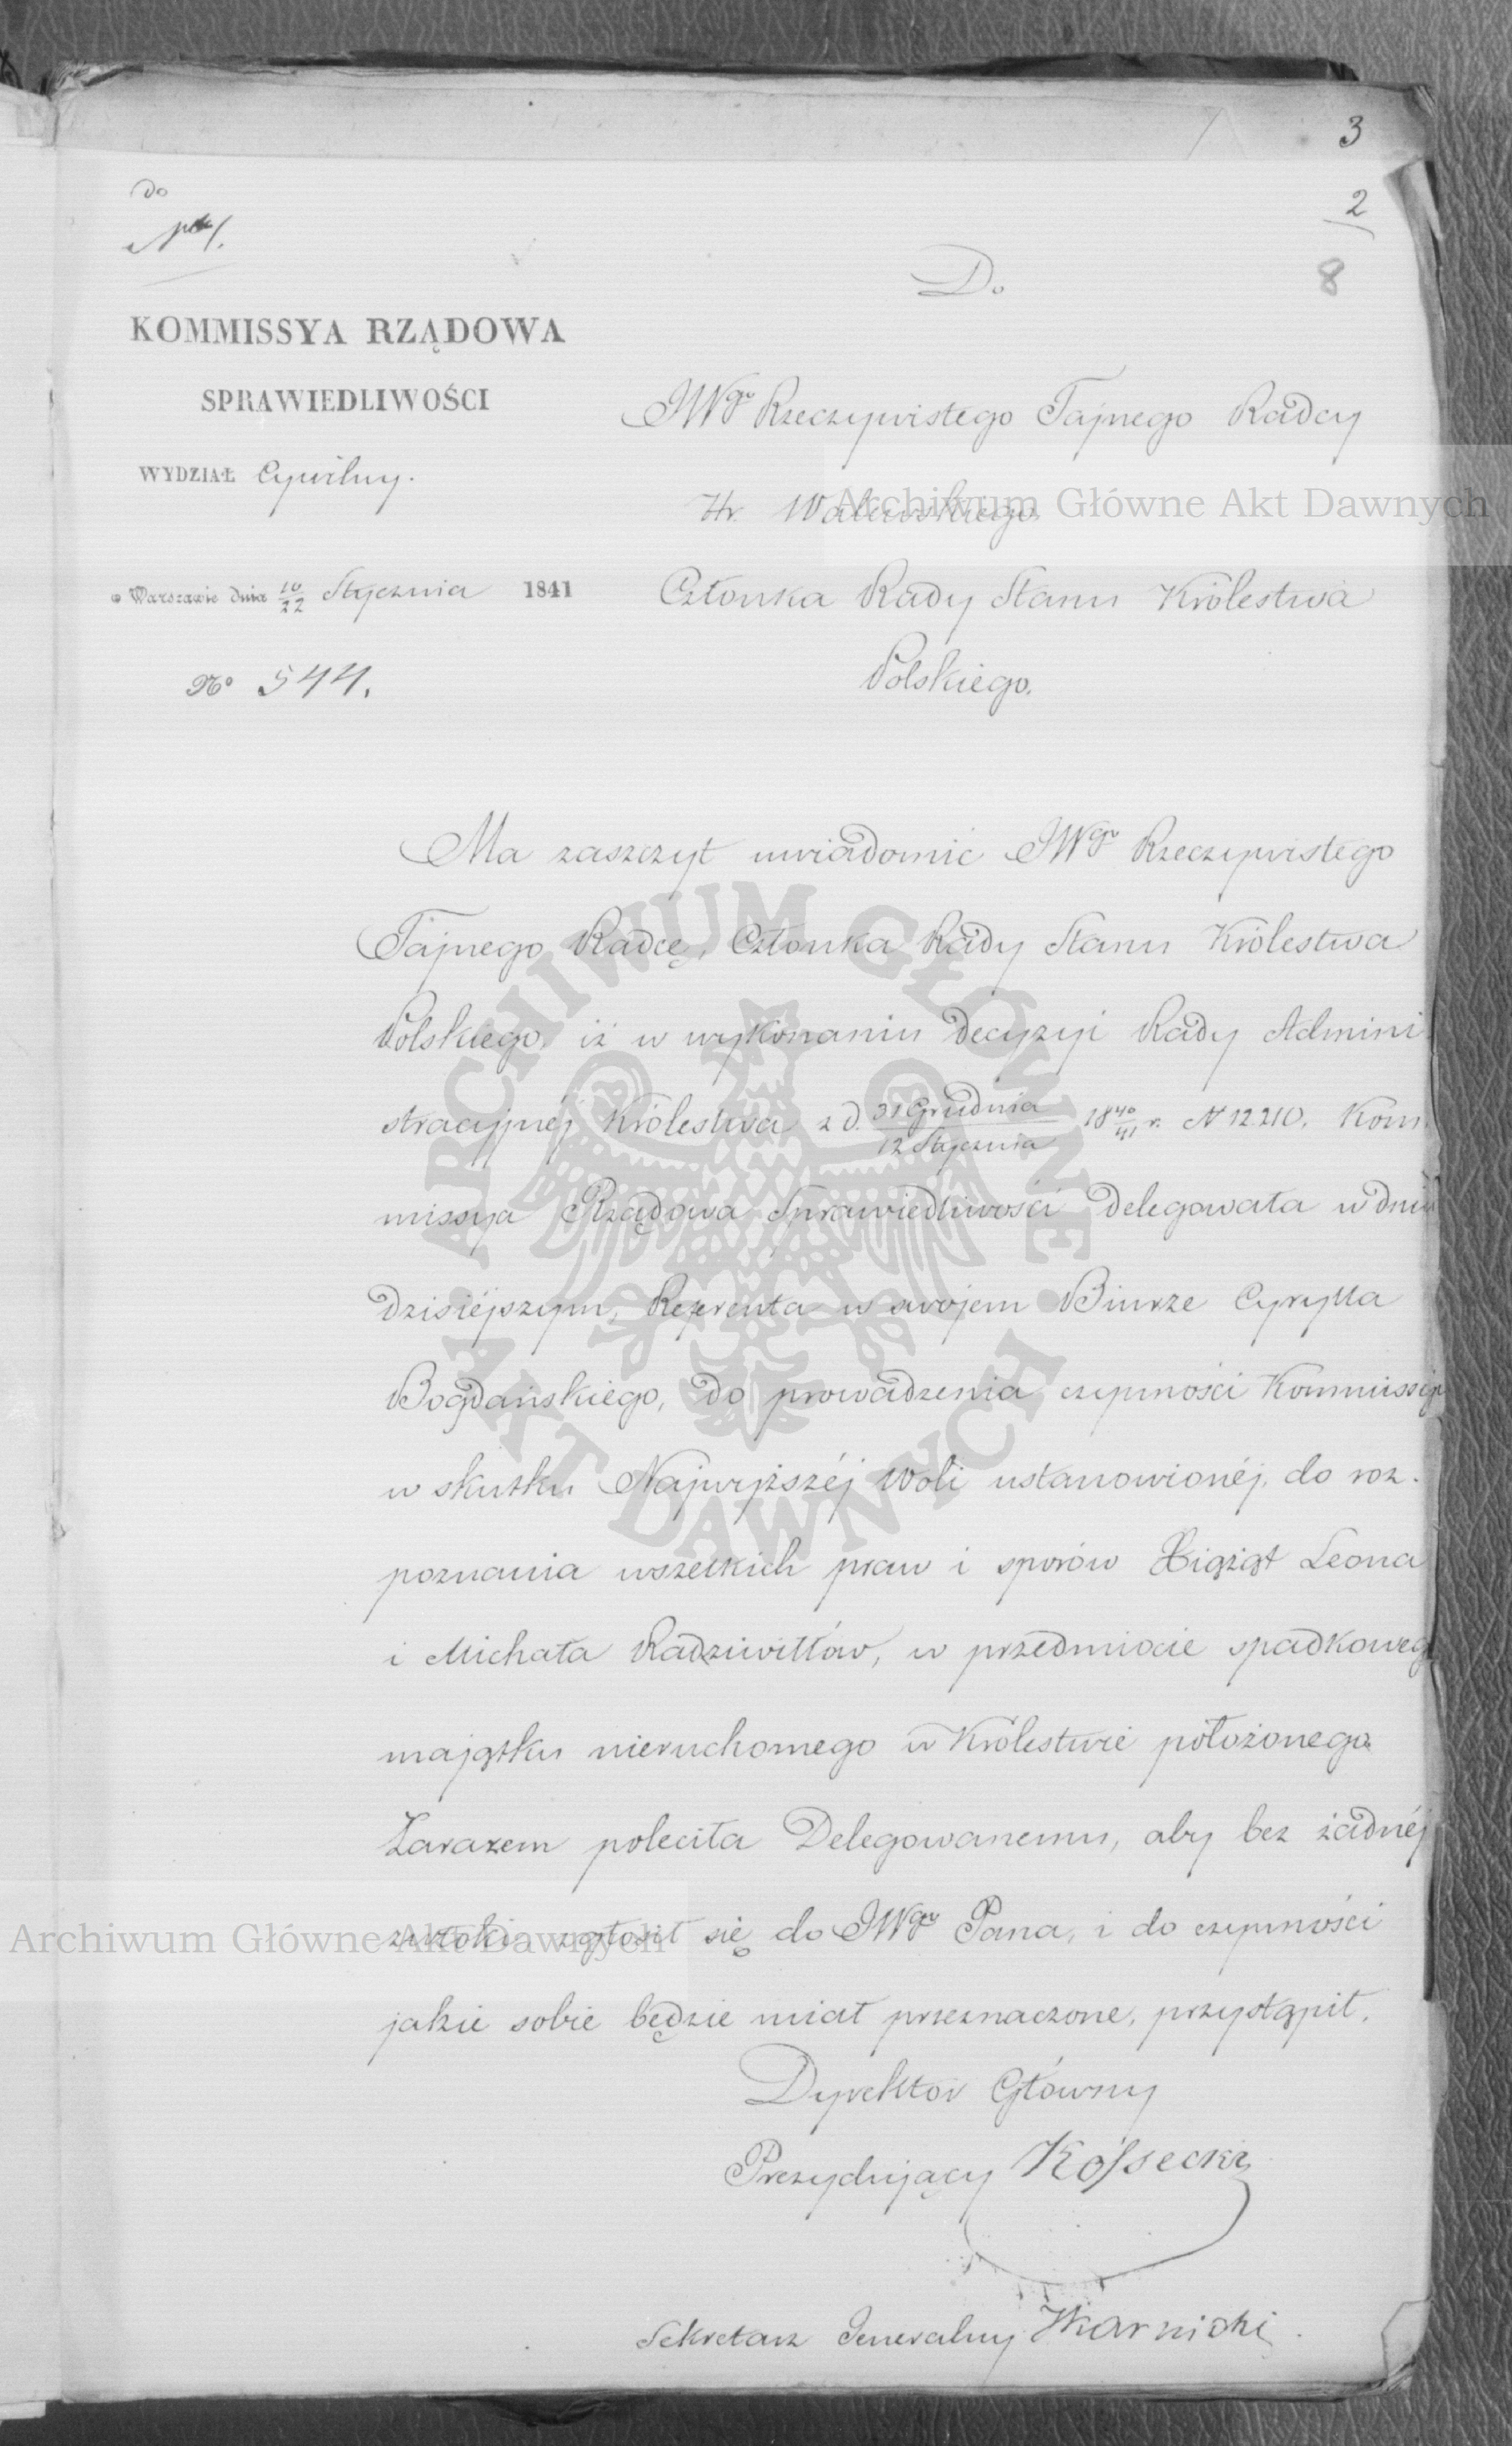 3
2
8
do
KOMMISSYA RZĄDOWA
SPRAWIEDLIWOŚCI
WYDZIAŁ Cywilny.
w Warszawie dnia 10/22 Stycznia 1841
No 544.
Do
JWgo Rzeczywistego Tajnego Radcy
Hr. Walewskiego
Członka Rady Stanu Królestwa
Polskiego.
Ma zaszczyt uwiadomić JWgo Rzeczywistego
Tajnego Radcę, Członka Rady Stanu Królestwa
Polskiego, iż w wykonaniu decyzyi Rady Admini
stracyjnéj Królestwa z d. 31 Grudnia/12 Stycznia 1840/41 r. N 12210. Kom
missya Rządowa Sprawiedliwości delegowała w dniu
dzisiéjszym, Referenta w swojem Biurze Cyrylla
Bogdańskiego, do prowadzenia czynności Kommissyi
w skutku Najwyższéj Woli ustanowionéj, do roz-
poznania wszelkich praw i sporów Xiążąt Leona
i Michała Radziwiłłów, w przedmiocie spadkowego
majątku nieruchomego w Królestwie położonego.
Zarazem poleciła Delegowanemu, aby bez żadnéj
zwłoki zgłosił się do JWgo Pana, i do czynności
jakie sobie będzie miał przeznaczone, przystąpił.
Dyrektor Główny
Prezydujący Kossecki
Sekretarz Jeneralny Karnicki
Archiwum Główne Akt Dawnych
ARCHIWUM GŁÓWNE AKT DAWNYCH
Archiwum Główne Akt Dawnych